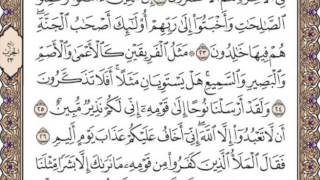 ٱلصَّٰلِحَٰتِ وَأَخْبَتُوٓا۟ إِلَىٰ رَبِّهِمْ أُو۟لَٰٓئِكَ أَصْحَٰبُ ٱلْجَنَّةِ
هُمْ فِيهَا خَٰلِدُونَ ٢٣ مَثَلُ ٱلْفَرِيقَيْنِ كَٱلْأَعْمَىٰ وَٱلْأَصَمِّ
وَٱلْبَصِيرِ وَٱلسَّمِيعِ ۚ هَلْ يَسْتَوِيَانِ مَثَلًا ۚ أَفَلَا تَذَكَّرُونَ
٢٤ وَلَقَدْ أَرْسَلْنَا نُوحًا إِلَىٰ قَوْمِهِۦٓ إِنِّى لَكُمْ نَذِيرٌ مُّبِينٌ ٢٥
أَن لَّا تَعْبُدُوٓا۟ إِلَّا ٱللَّهَ ۖ إِنِّىٓ أَخَافُ عَلَيْكُمْ عَذَابَ يَوْمٍ أَلِيمٍ ٢٦
فَقَالَ ٱلْمَلَأُ ٱلَّذِينَ كَفَرُوا۟ مِن قَوْمِهِۦ مَا نَرَىٰكَ إِلَّا بَشَرًا مِّثْلَنَا